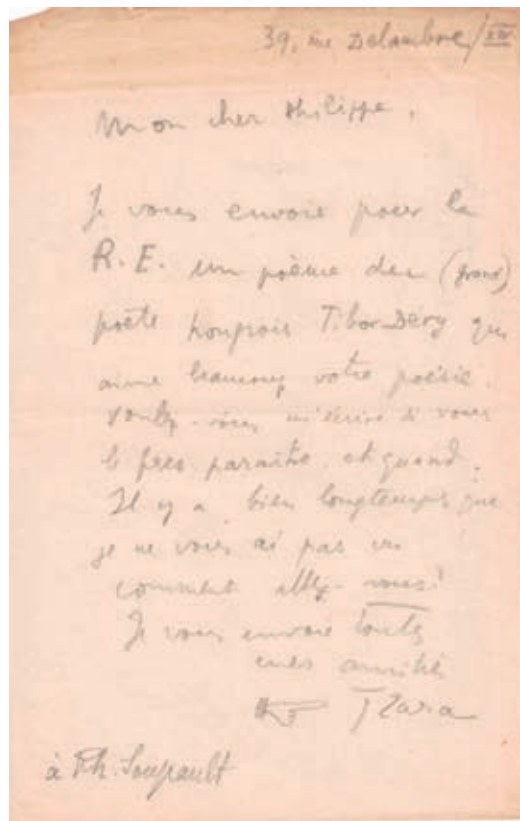 39, rue Delambre / XIV
Mon cher Philippe,
Je vous envoie pour la
R. E. un poème du (grand)
poète hongrois Tibor Dery qui
aime beaucoup votre poésie.
Voulez-vous m'écrire si vous
le feres paraître, et quand.
Il y a bien longtemps que
je ne vous ai pas vu
comment allez-vous?
Je vous envoie toutes
mes amitiés
Tzara
à Ph. Soupault